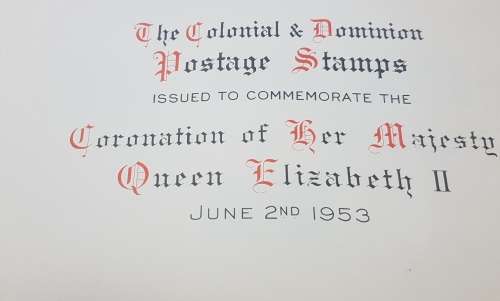 The Colonial & Dominion
Postage Stamps
ISSUED TO COMMEMORATE THE
Coronation of Her Majesty
Queen Elizabeth II
JUNE 2ND 1953